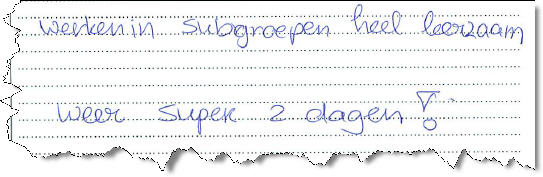 werken in subgroepen heel leerzaam
weer super 2 dagen!